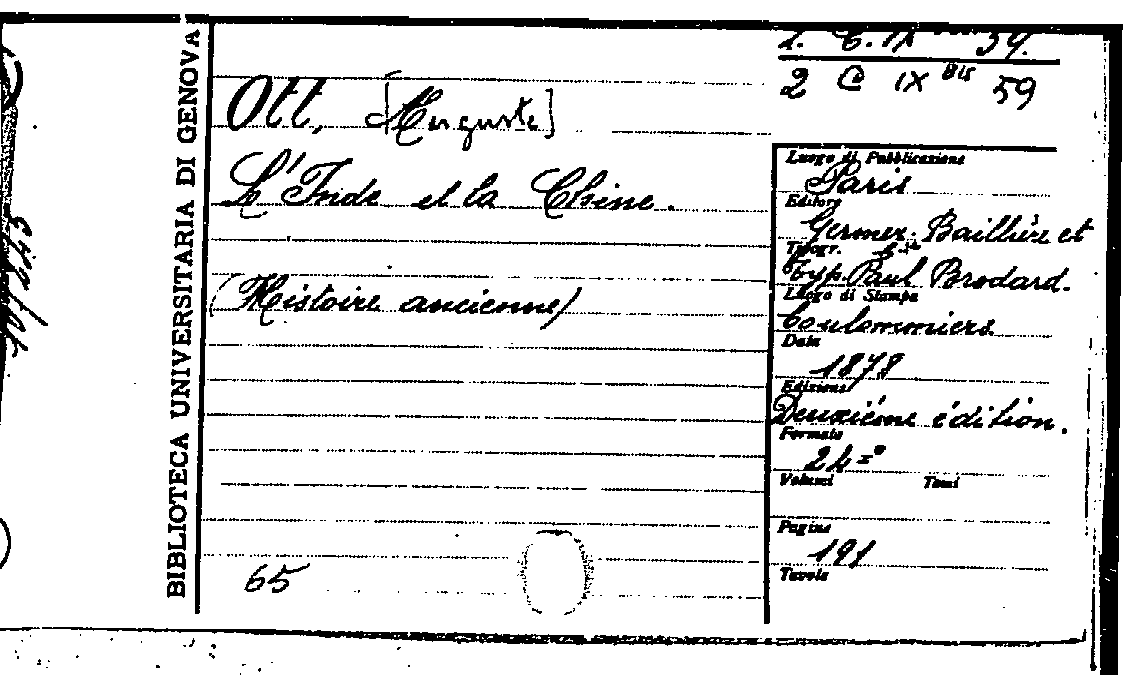 BIBLIOTECA UNIVERSITARIA DI GENOVA
2 C IX Bis 59
Ott, [Auguste]
L'Inde et la Chine.
(Histoire ancienne)
65
Luogo di Pubblicazione
Paris
Editore
Germer. Baillière et
Tipogr.
Typ. Paul Brodard.
Luogo di Stampa
Coulommiers
Data
1878
Edizione
Deuxiéme édition.
Formato
24=º
Volumi Tomi
Pagine
191
Tavole